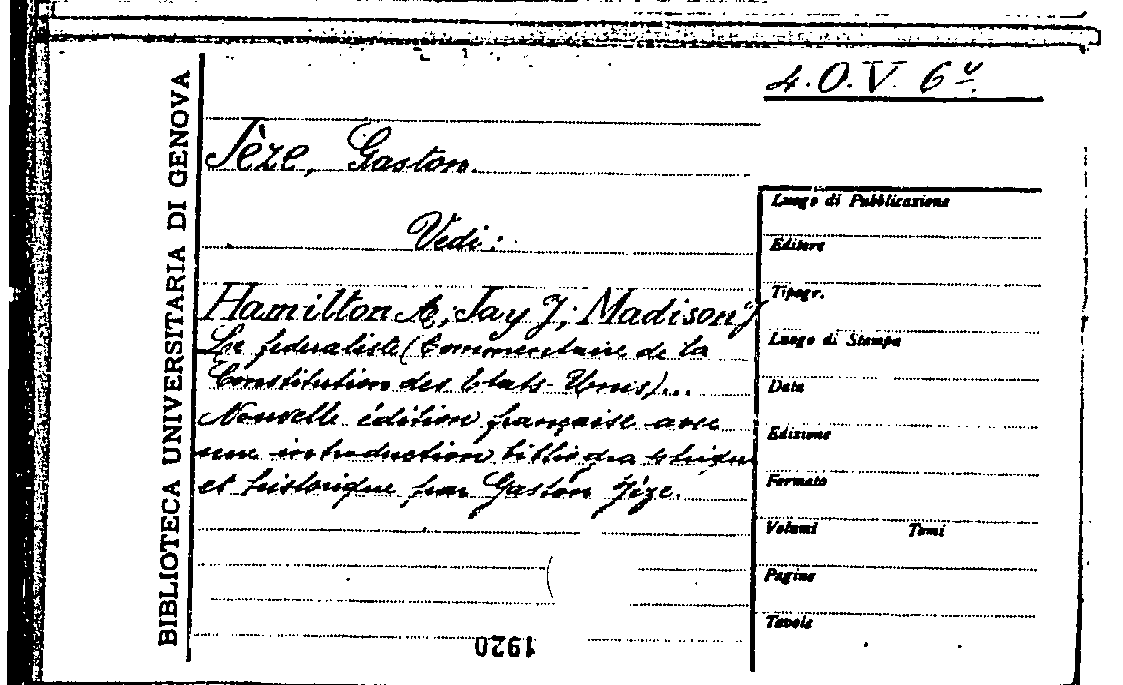 4.O.V. 6
BIBLIOTECA UNIVERSITARIA DI GENOVA
Jèze, Gaston.
Vedi:
Hamilton A; Jay J; Madison J
Le federaliste (Commentaire de la
Constitution des Etats-Unis)...
Nouvelle édition française avec
une introduction bibliographique
et historique par Gaston Jèze.
1920
Luogo di Pubblicazione
Editore
Tipogr.
Luogo di Stampa
Data
Edizione
Formato
Volumi Tomi
Pagine
Tavole